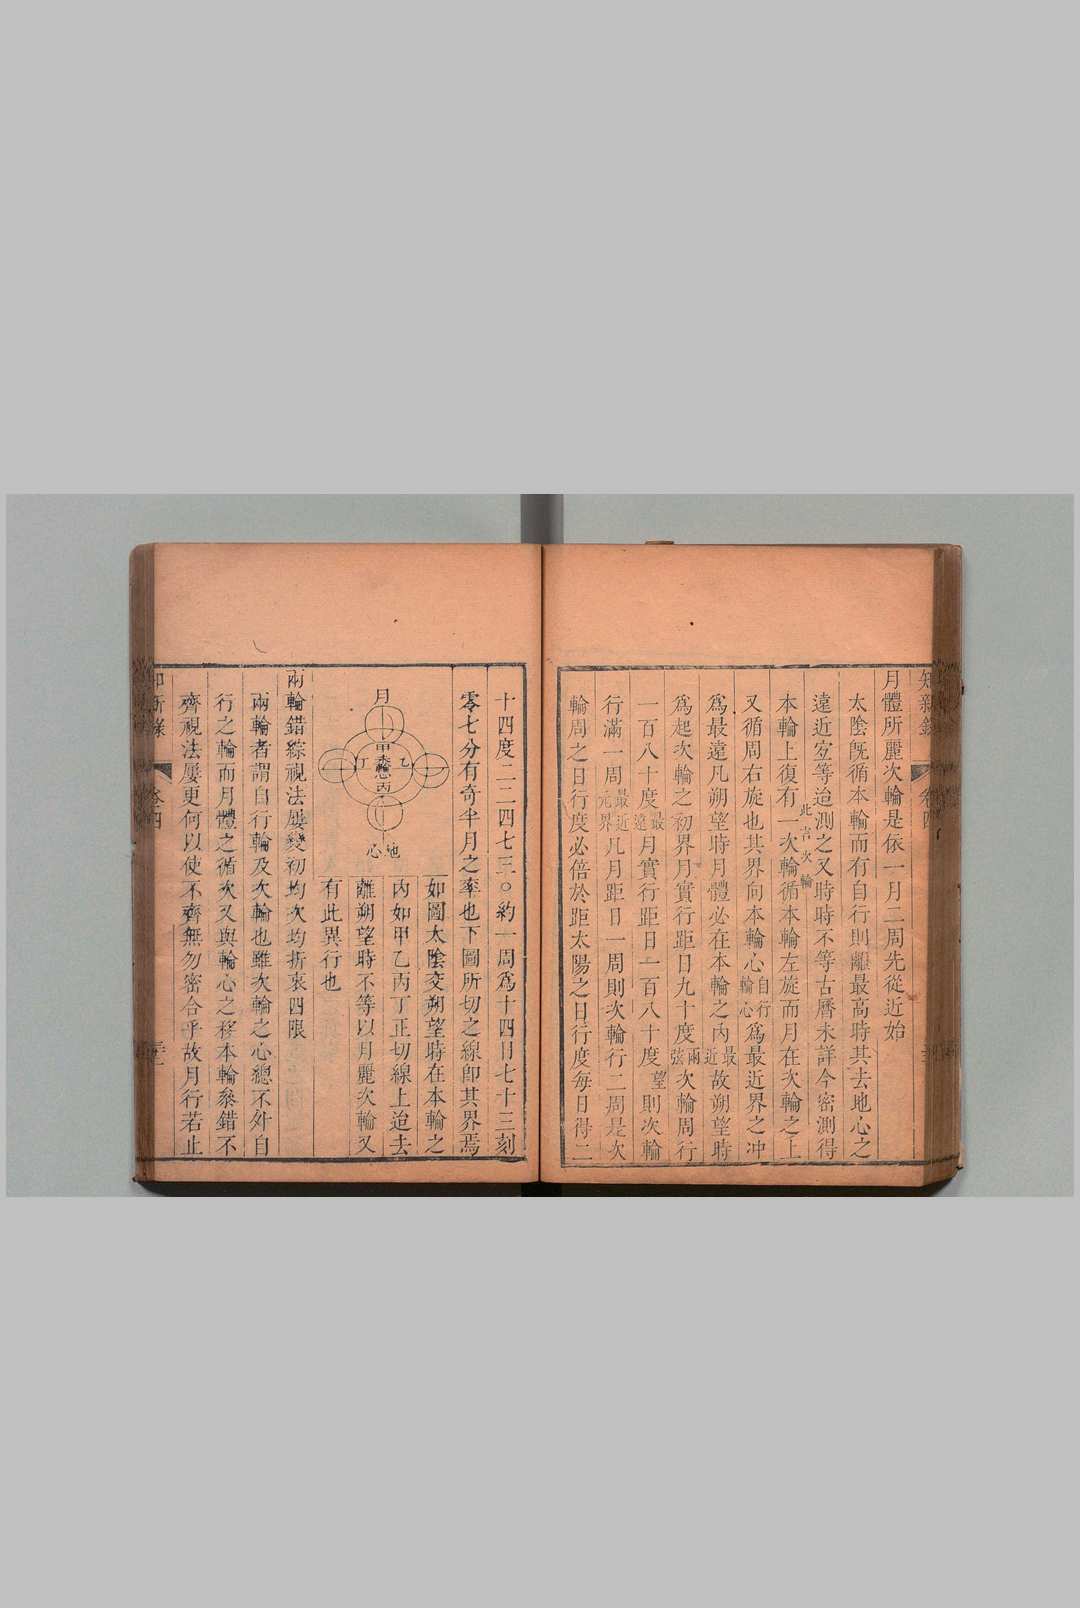 知新錄 卷四
月體所麗次輪是依一月二周先從近始
太陰旣循本輪而有自行則離最高時其去地心之
遠近宜等迨測之又時時不等古曆未詳今密測得
此言次輪
本輪上復有一次輪循本輪左旋而月在次輪之上
又循周右旋也其界向本輪心自行輪心爲最近界之冲
爲最遠凡朔望時月體必在本輪之內最近故朔望時
爲起次輪之初界月實行距日九十度兩弦次輪周行
一百八十度最遠月實行距日一百八十度望則次輪
行滿一周最近元界凡月距日一周則次輪行二周是次
輪周之日行度必倍於距太陽之日行度每日得二
十四度二二四七三〇約一周爲十四日七十三刻
零七分有奇半月之率也下圖所切之線卽其界焉
月
甲
乙
丙
丁
本輪心
地心
如圖太陰交朔望時在本輪之
內如甲乙丙丁正切線上迨去
離朔望時不等以月麗次輪又
有此異行也
兩輪錯綜視法屢變初均次均折衷四限
兩輪者謂自行輪及次輪也雖次輪之心總不外自
行之輪而月體之循次又與輪心之移本輪參錯不
齊視法屢更何以使不齊無勿密合乎故月行若止
知新錄 卷四